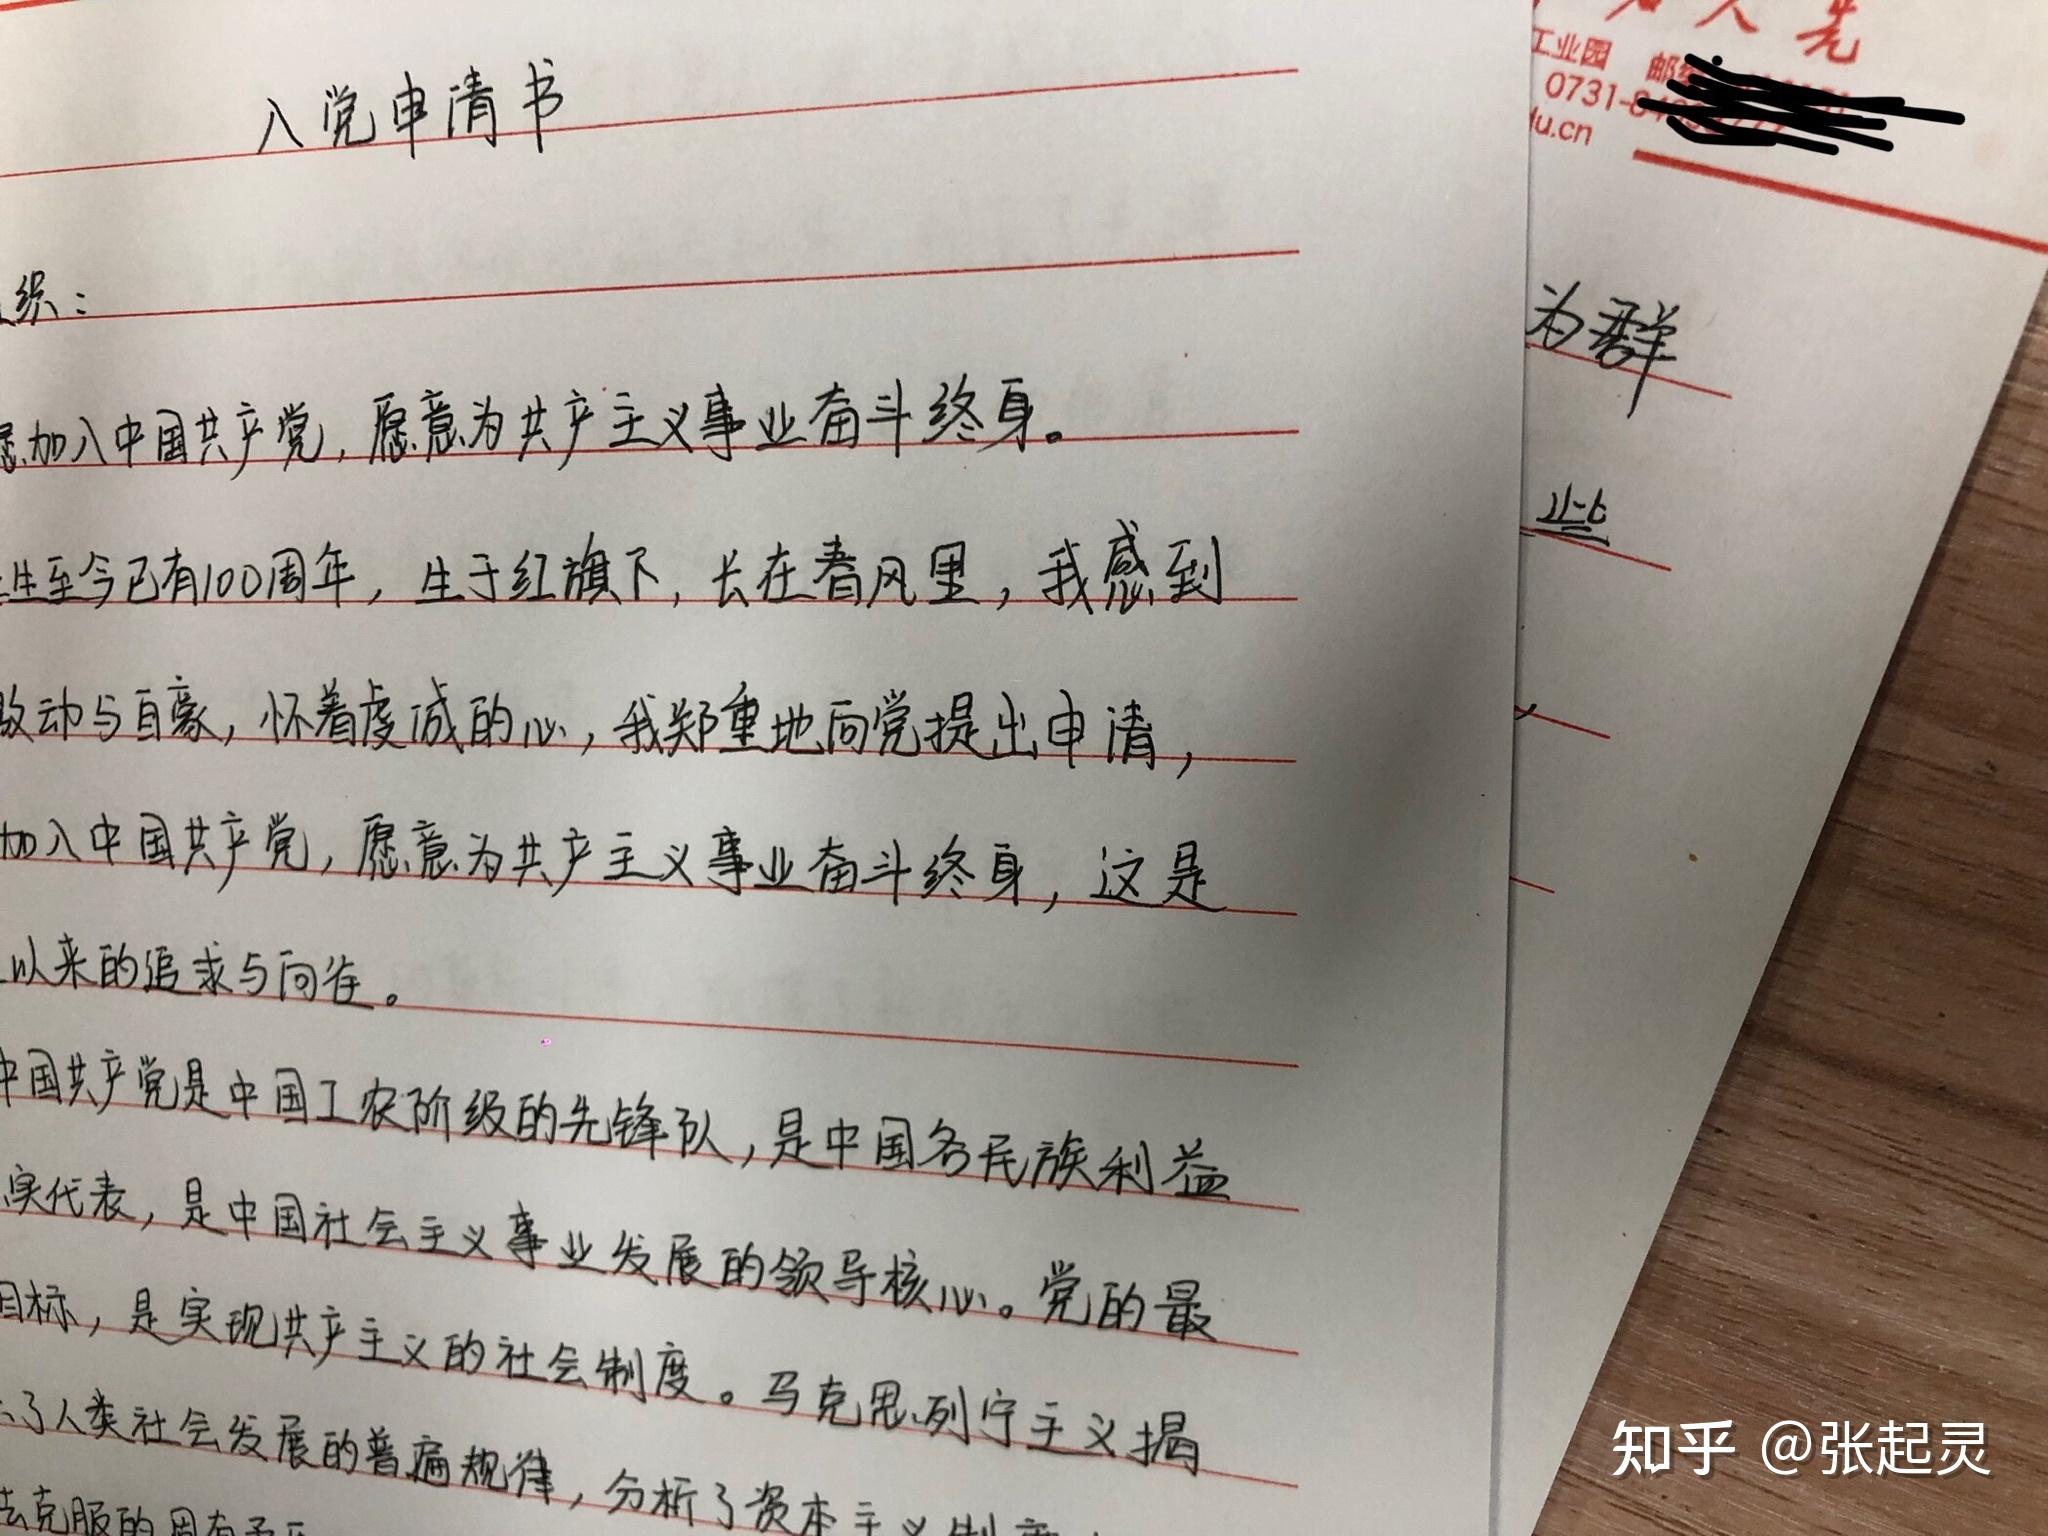 入党申请书
织：
愿加入中国共产党，愿意为共产主义事业奋斗终身。
生至今已有100周年，生于红旗下，长在春风里，我感到
动与自豪，怀着虔诚的心，我郑重地向党提出申请，
加入中国共产党，愿意为共产主义事业奋斗终身，这是
以来的追求与向往。
中国共产党是中国工农阶级的先锋队，是中国各民族利益
实代表，是中国社会主义事业发展的领导核心。党的最
目标，是实现共产主义的社会制度。马克思列宁主义揭
了人类社会发展的普遍规律，分析了资本主义制度
法克服的固有矛盾
人先
工业园 邮
0731-8
du.cn
为群
些
知乎 @张起灵